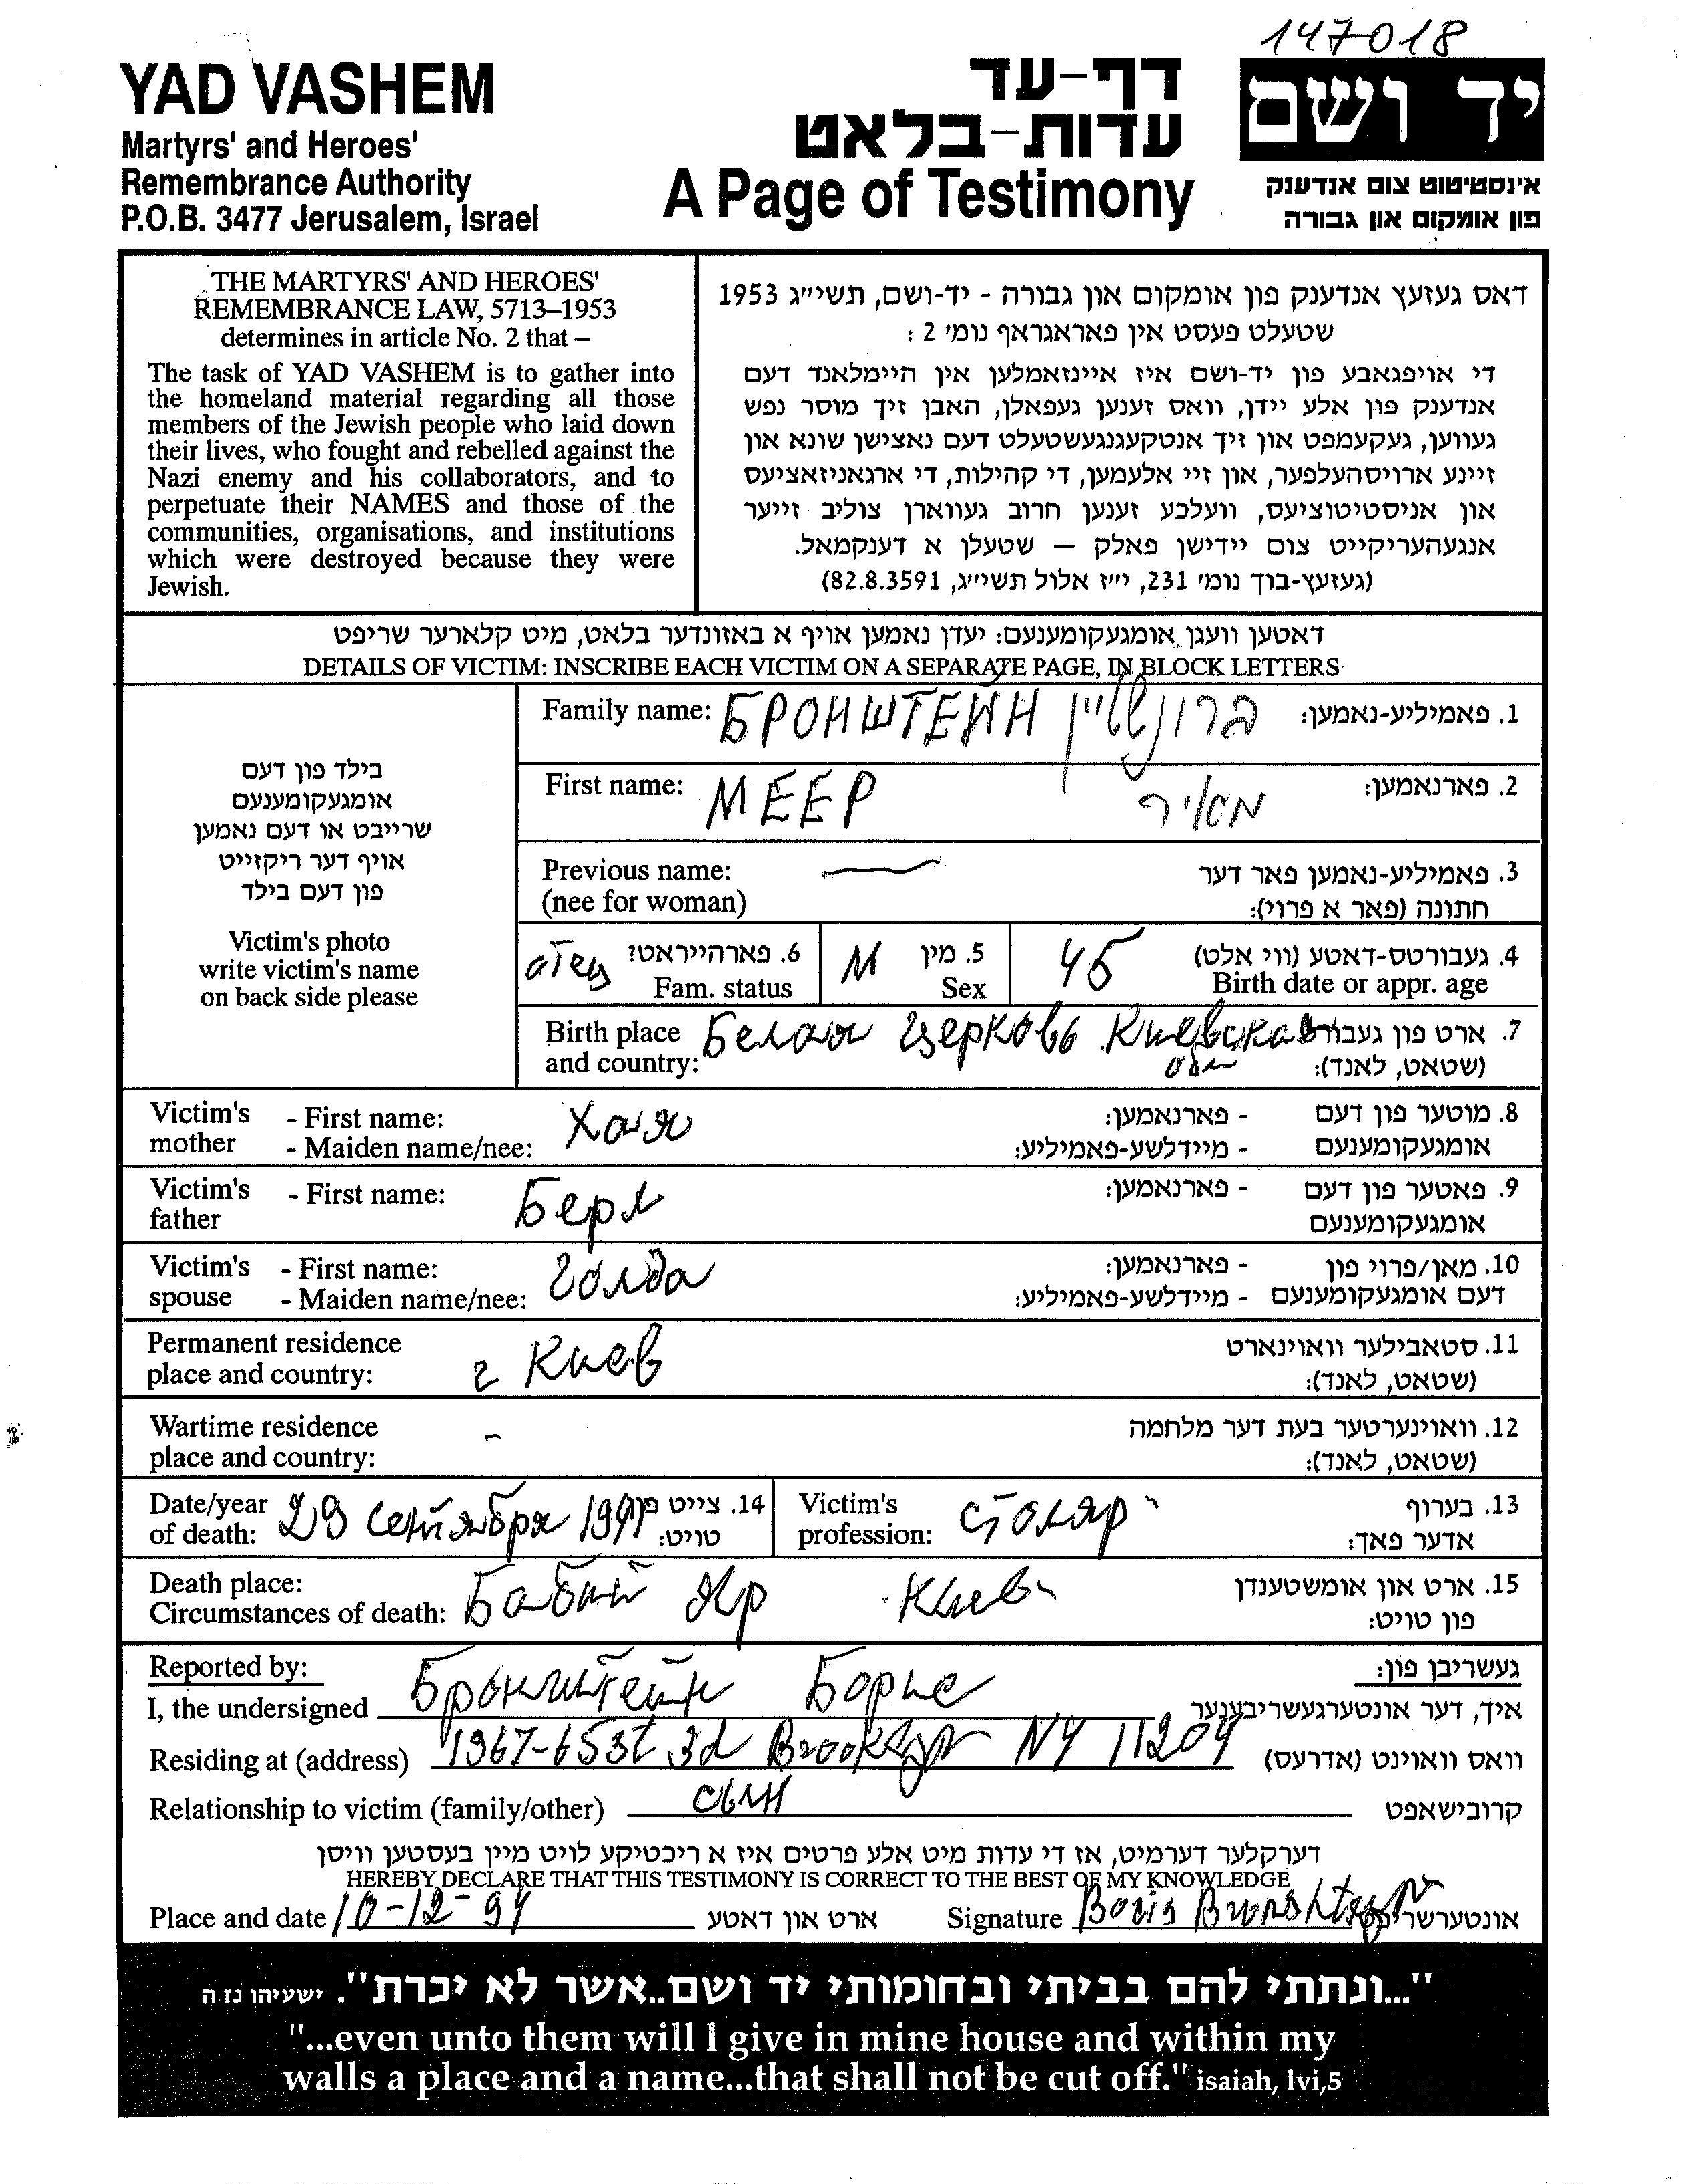 147018
YAD VASHEM
Martyrs' and Heroes'
Remembrance Authority
P.O.B. 3477 Jerusalem, Israel
דף-עד
עדות-בלאט
A Page of Testimony
יד ושם
אינסטיטוט צום אנדענק
פון אומקום און גבורה
THE MARTYRS' AND HEROES'
REMEMBRANCE LAW, 5713–1953
determines in article No. 2 that –
The task of YAD VASHEM is to gather into
the homeland material regarding all those
members of the Jewish people who laid down
their lives, who fought and rebelled against the
Nazi enemy and his collaborators, and to
perpetuate their NAMES and those of the
communities, organisations, and institutions
which were destroyed because they were
Jewish.
דאס געזעץ אנדענק פון אומקום און גבורה - יד-ושם, תשי״ג 1953
שטעלט פעסט אין פאראגראף נומ׳ 2 :
די אויפגאבע פון יד-ושם איז איינזאמלען אין היימלאנד דעם
אנדענק פון אלע יידן, וואס זענען געפאלן, האבן זיך מוסר נפש
געווען, געקעמפט און זיך אנטקעגנגעשטעלט דעם נאצישן שונא און
זיינע ארויסהעלפער, און זיי אלעמען, די קהילות, די ארגאניזאציעס
און אניסטיטוציעס, וועלכע זענען חרוב געווארן צוליב זייער
אנגעהעריקייט צום יידישן פאלק — שטעלן א דענקמאל.
(געזעץ-בוך נומ׳ 231, י״ז אלול תשי״ג, 82.8.3591)
דאטען וועגן אומגעקומענעם: יעדן נאמען אויף א באזונדער בלאט, מיט קלארער שריפט
DETAILS OF VICTIM: INSCRIBE EACH VICTIM ON A SEPARATE PAGE, IN BLOCK LETTERS
בילד פון דעם
אומגעקומענעם
שרייבט או דעם נאמען
אויף דער ריקזייט
פון דעם בילד
Victim's photo
write victim's name
on back side please
Family name: БРОНШТЕЙН ברונשטיין 1. פאמיליע-נאמען:
First name: МЕЕР מאיר 2. פארנאמען:
Previous name: 3. פאמיליע-נאמען פאר דער
(nee for woman) חתונה (פאר א פרוי):
отец 6. פארהייראטט? М 5. מין 45 4. געבורטס-דאטע (ווי אלט)
Fam. status Sex Birth date or appr. age
Birth place Белая Церковь Киевская 7. ארט פון
and country: обл (שטאט, לאנד):
Victim's - First name: Хая - פארנאמען: 8. מוטער פון דעם
mother - Maiden name/nee: - מיידלשע-פאמיליע: אומגעקומענעם
Victim's - First name: Берл - פארנאמען: 9. פאטער פון דעם
father אומגעקומענעם
Victim's - First name: Голда - פארנאמען: 10. מאן/פרוי פון
spouse - Maiden name/nee: - מיידלשע-פאמיליע: דעם אומגעקומענעם
Permanent residence 11. סטאבילער וואוינארט
place and country: г Киев (שטאט, לאנד):
Wartime residence - 12. וואוינערטער בעת דער מלחמה
place and country: (שטאט, לאנד):
Date/year 29 сентября 1941 14. צייט פון Victim's столяр 13. בערוף
of death: טויט: profession: אדער פאך:
Death place: Бабий Яр Киев 15. ארט און אומשטענדן
Circumstances of death: פון טויט:
Reported by: געשריבן פון:
I, the undersigned Бронштейн Борис איך, דער אונטערגעשריבענער
Residing at (address) 1967-65St 3d Brooklyn NY 11204 וואס וואוינט (אדרעס)
Relationship to victim (family/other) сын קרובישאפט
דערקלער דערמיט, אז די עדות מיט אלע פרטים איז א ריכטיקע לויט מיין בעסטען וויסן
HEREBY DECLARE THAT THIS TESTIMONY IS CORRECT TO THE BEST OF MY KNOWLEDGE
Place and date 10-12-94 ארט און דאטע Signature Boris Bronshteyn
"...ונתתי להם בביתי ובחומותי יד ושם..אשר לא יכרת". ישעיהו נז ה
"...even unto them will I give in mine house and within my
walls a place and a name...that shall not be cut off." isaiah, lvi,5